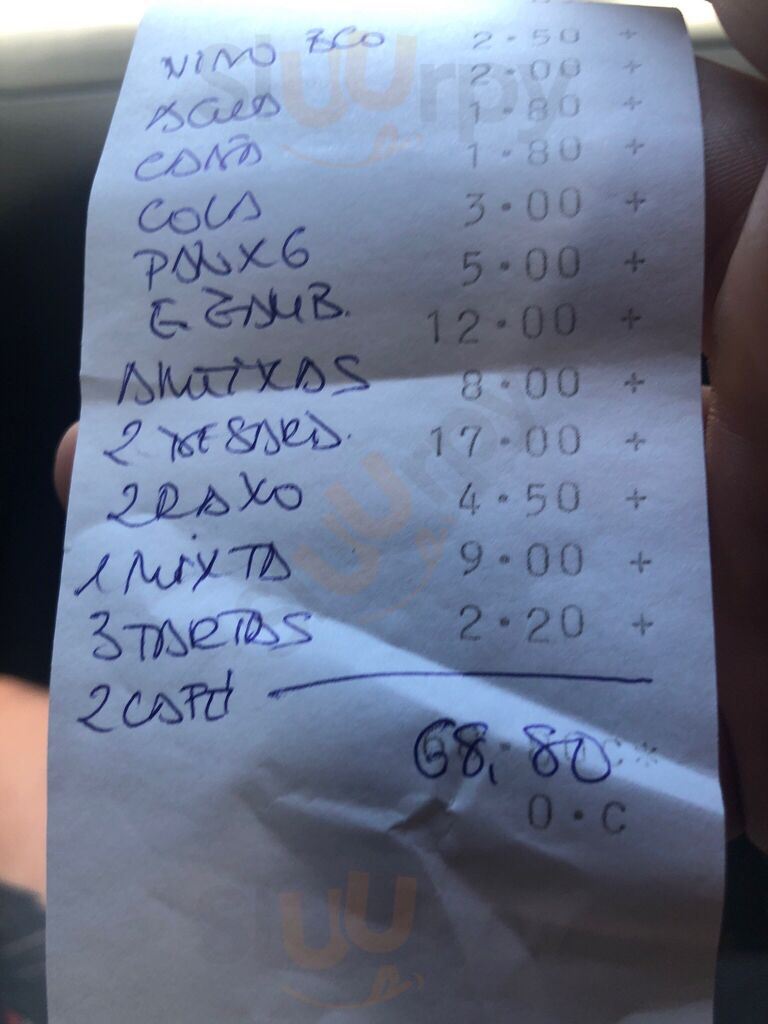 VINO BCO 2.50 +
AGUA 2.00 +
CAÑA 1.80 +
COLA 1.80 +
PAN X6 3.00 +
E ZAMB. 5.00 +
AMEIXAS 12.00 +
2 8.00 +
2 RAXO 17.00 +
1 MIXTA 4.50 +
3 TARTAS 9.00 +
2 CAFÉ 2.20 +
68,80
0.C
sluurpy
sluurpy
sluu